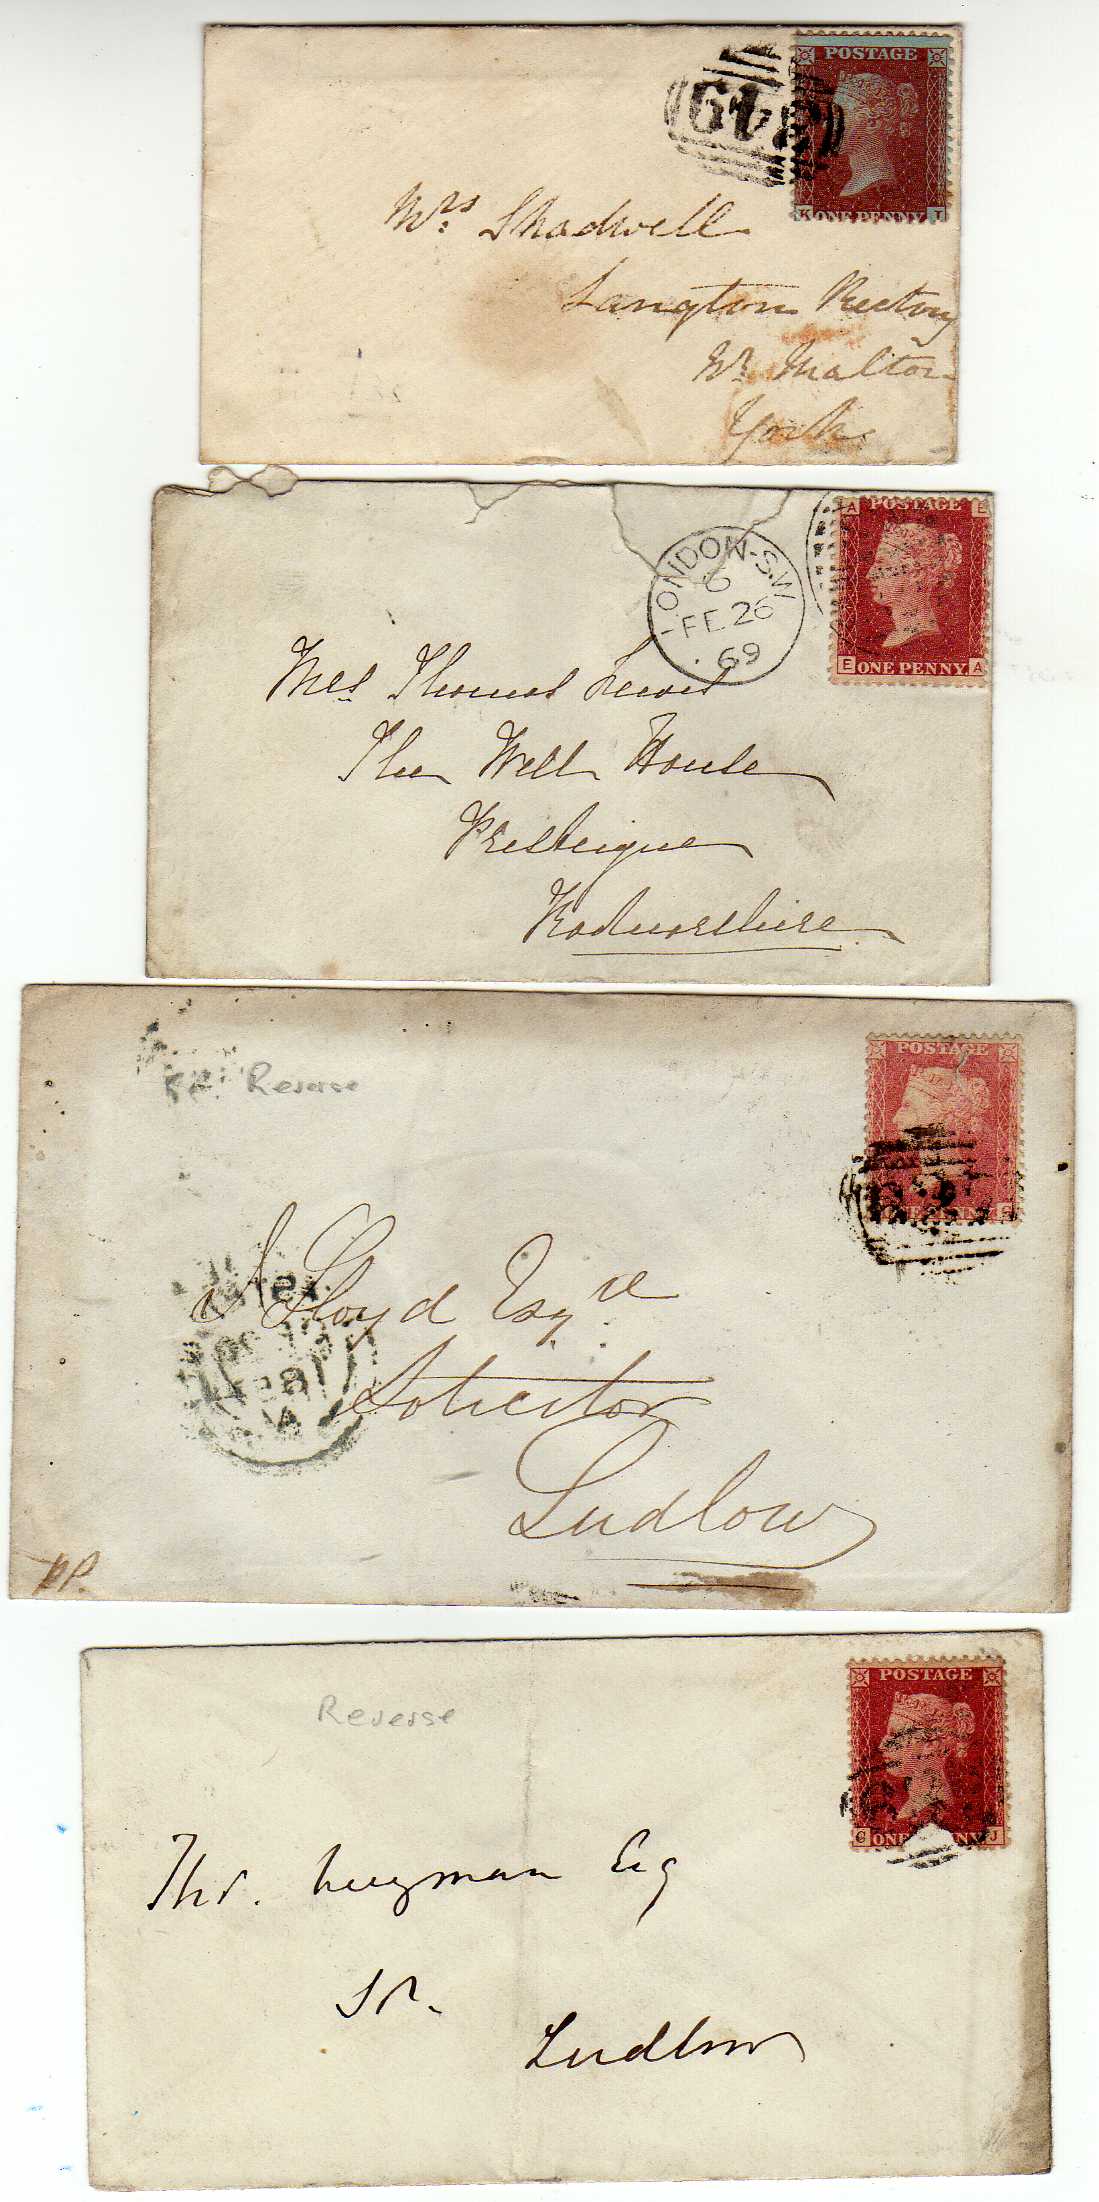 POSTAGE
K ONE PENNY I
Mrs Shadwell
Langton Rectory
Nr. Malton
York
POSTAGE
A E
LONDON - S.W
6
FE 26
69
E ONE PENNY A
Mrs Thomas Lewis
The Well House
Presteigne
Radnorshire
POSTAGE
Reverse
Lloyd Esqre
Solicitor
Ludlow
pp.
POSTAGE
Reverse
G ONE PENNY J
Thos.
Esq
Sr.
Ludlow